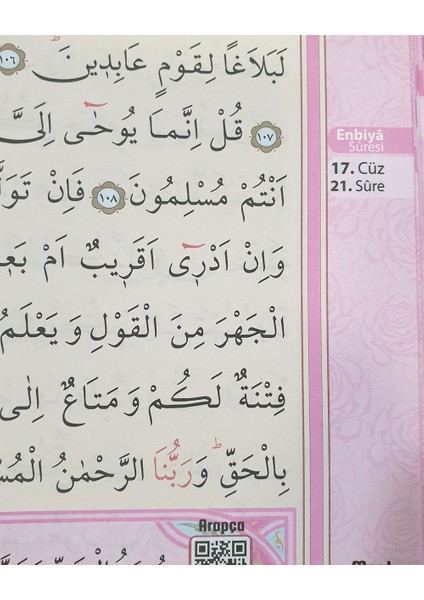 لَبَلَاغًا لِقَوْمٍ عَابِدٖينَۜ ﴿١٠٦﴾
﴿١٠٧﴾ قُلْ اِنَّمَا يُوحٰٓى اِلَيَّ
اَنْتُمْ مُسْلِمُونَ ﴿١٠٨﴾ فَاِنْ تَوَلَّ
وَاِنْ اَدْرٖٓي اَقَرٖيبٌ اَمْ بَعٖ
الْجَهْرَ مِنَ الْقَوْلِ وَ يَعْلَمُ
فِتْنَةٌ لَكُمْ وَ مَتَاعٌ اِلٰى
بِالْحَقِّۜ وَرَبُّنَا الرَّحْمٰنُ الْمُسْ
Enbiyâ
Sûresi
17. Cüz
21. Sûre
Arapça